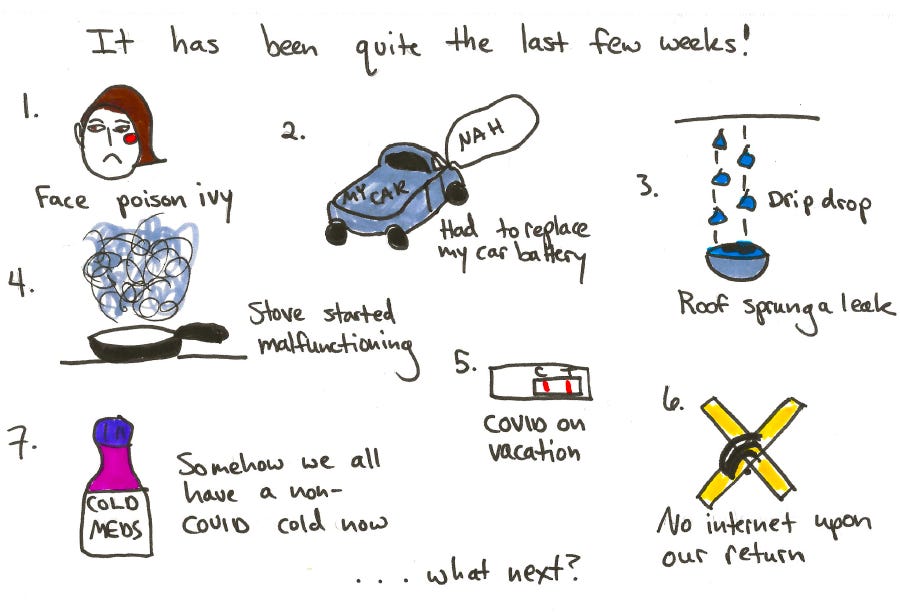 It has been quite the last few weeks!
1.
Face poison ivy
2.
NAH
MY CAR
Had to replace
my car battery
3.
Drip drop
Roof sprung a leak
4.
Stove started
malfunctioning
5.
C T
COVID on
vacation
6.
No internet upon
our return
7.
COLD
MEDS
Somehow we all
have a non-
COVID cold now
.... what next?